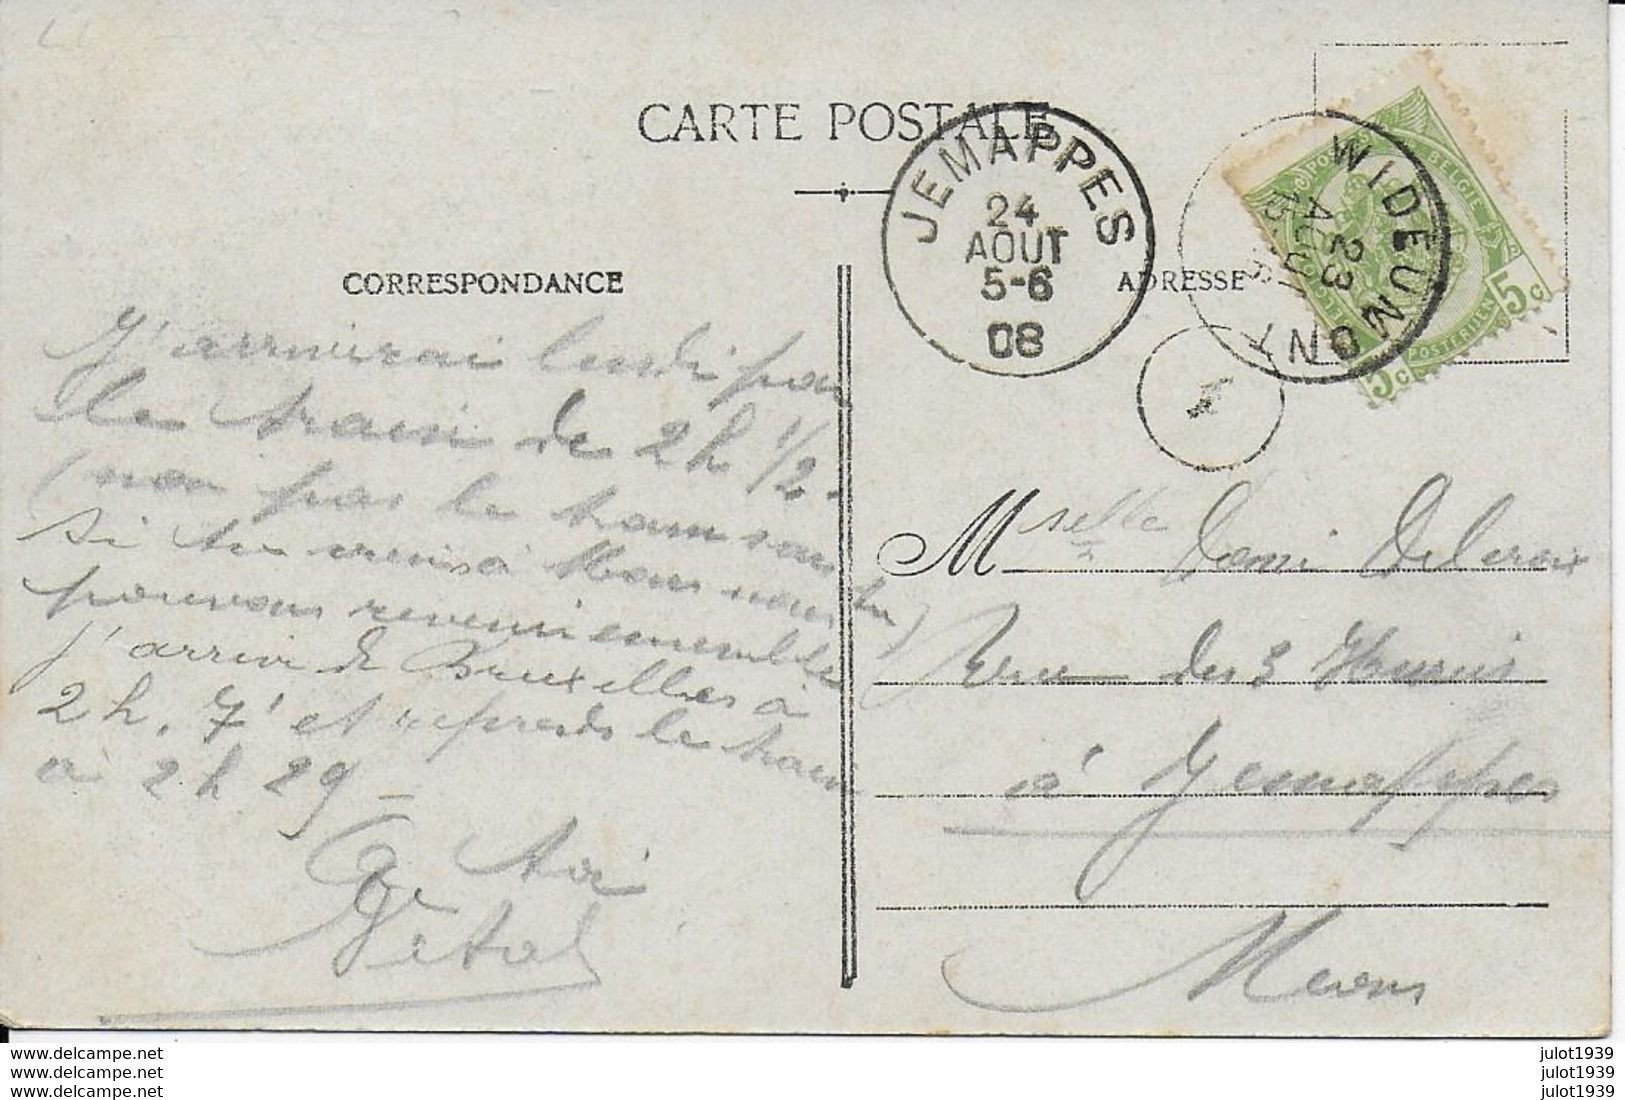 CARTE POSTALE
CORRESPONDANCE
ADRESSE
JEMAPPES
24
AOUT
5-6
08
WIDEUMONT
23
AOUT
BELGIE
POSTERIJEN
5c
5c
1
J'arriverai lundi par
le train de 2h 1/2 -
(non pas le tram
si tu viens à Mons nous
pouvons revenir ensemble)
J'arrive de Bruxelles à
2h. 7' et reprends le train
à 2h 29 -
à toi
Vital
Mselle Delcroix
Rue des 3
à Jemappes
Mons
www.delcampe.net
www.delcampe.net
www.delcampe.net
julot1939
julot1939
julot1939